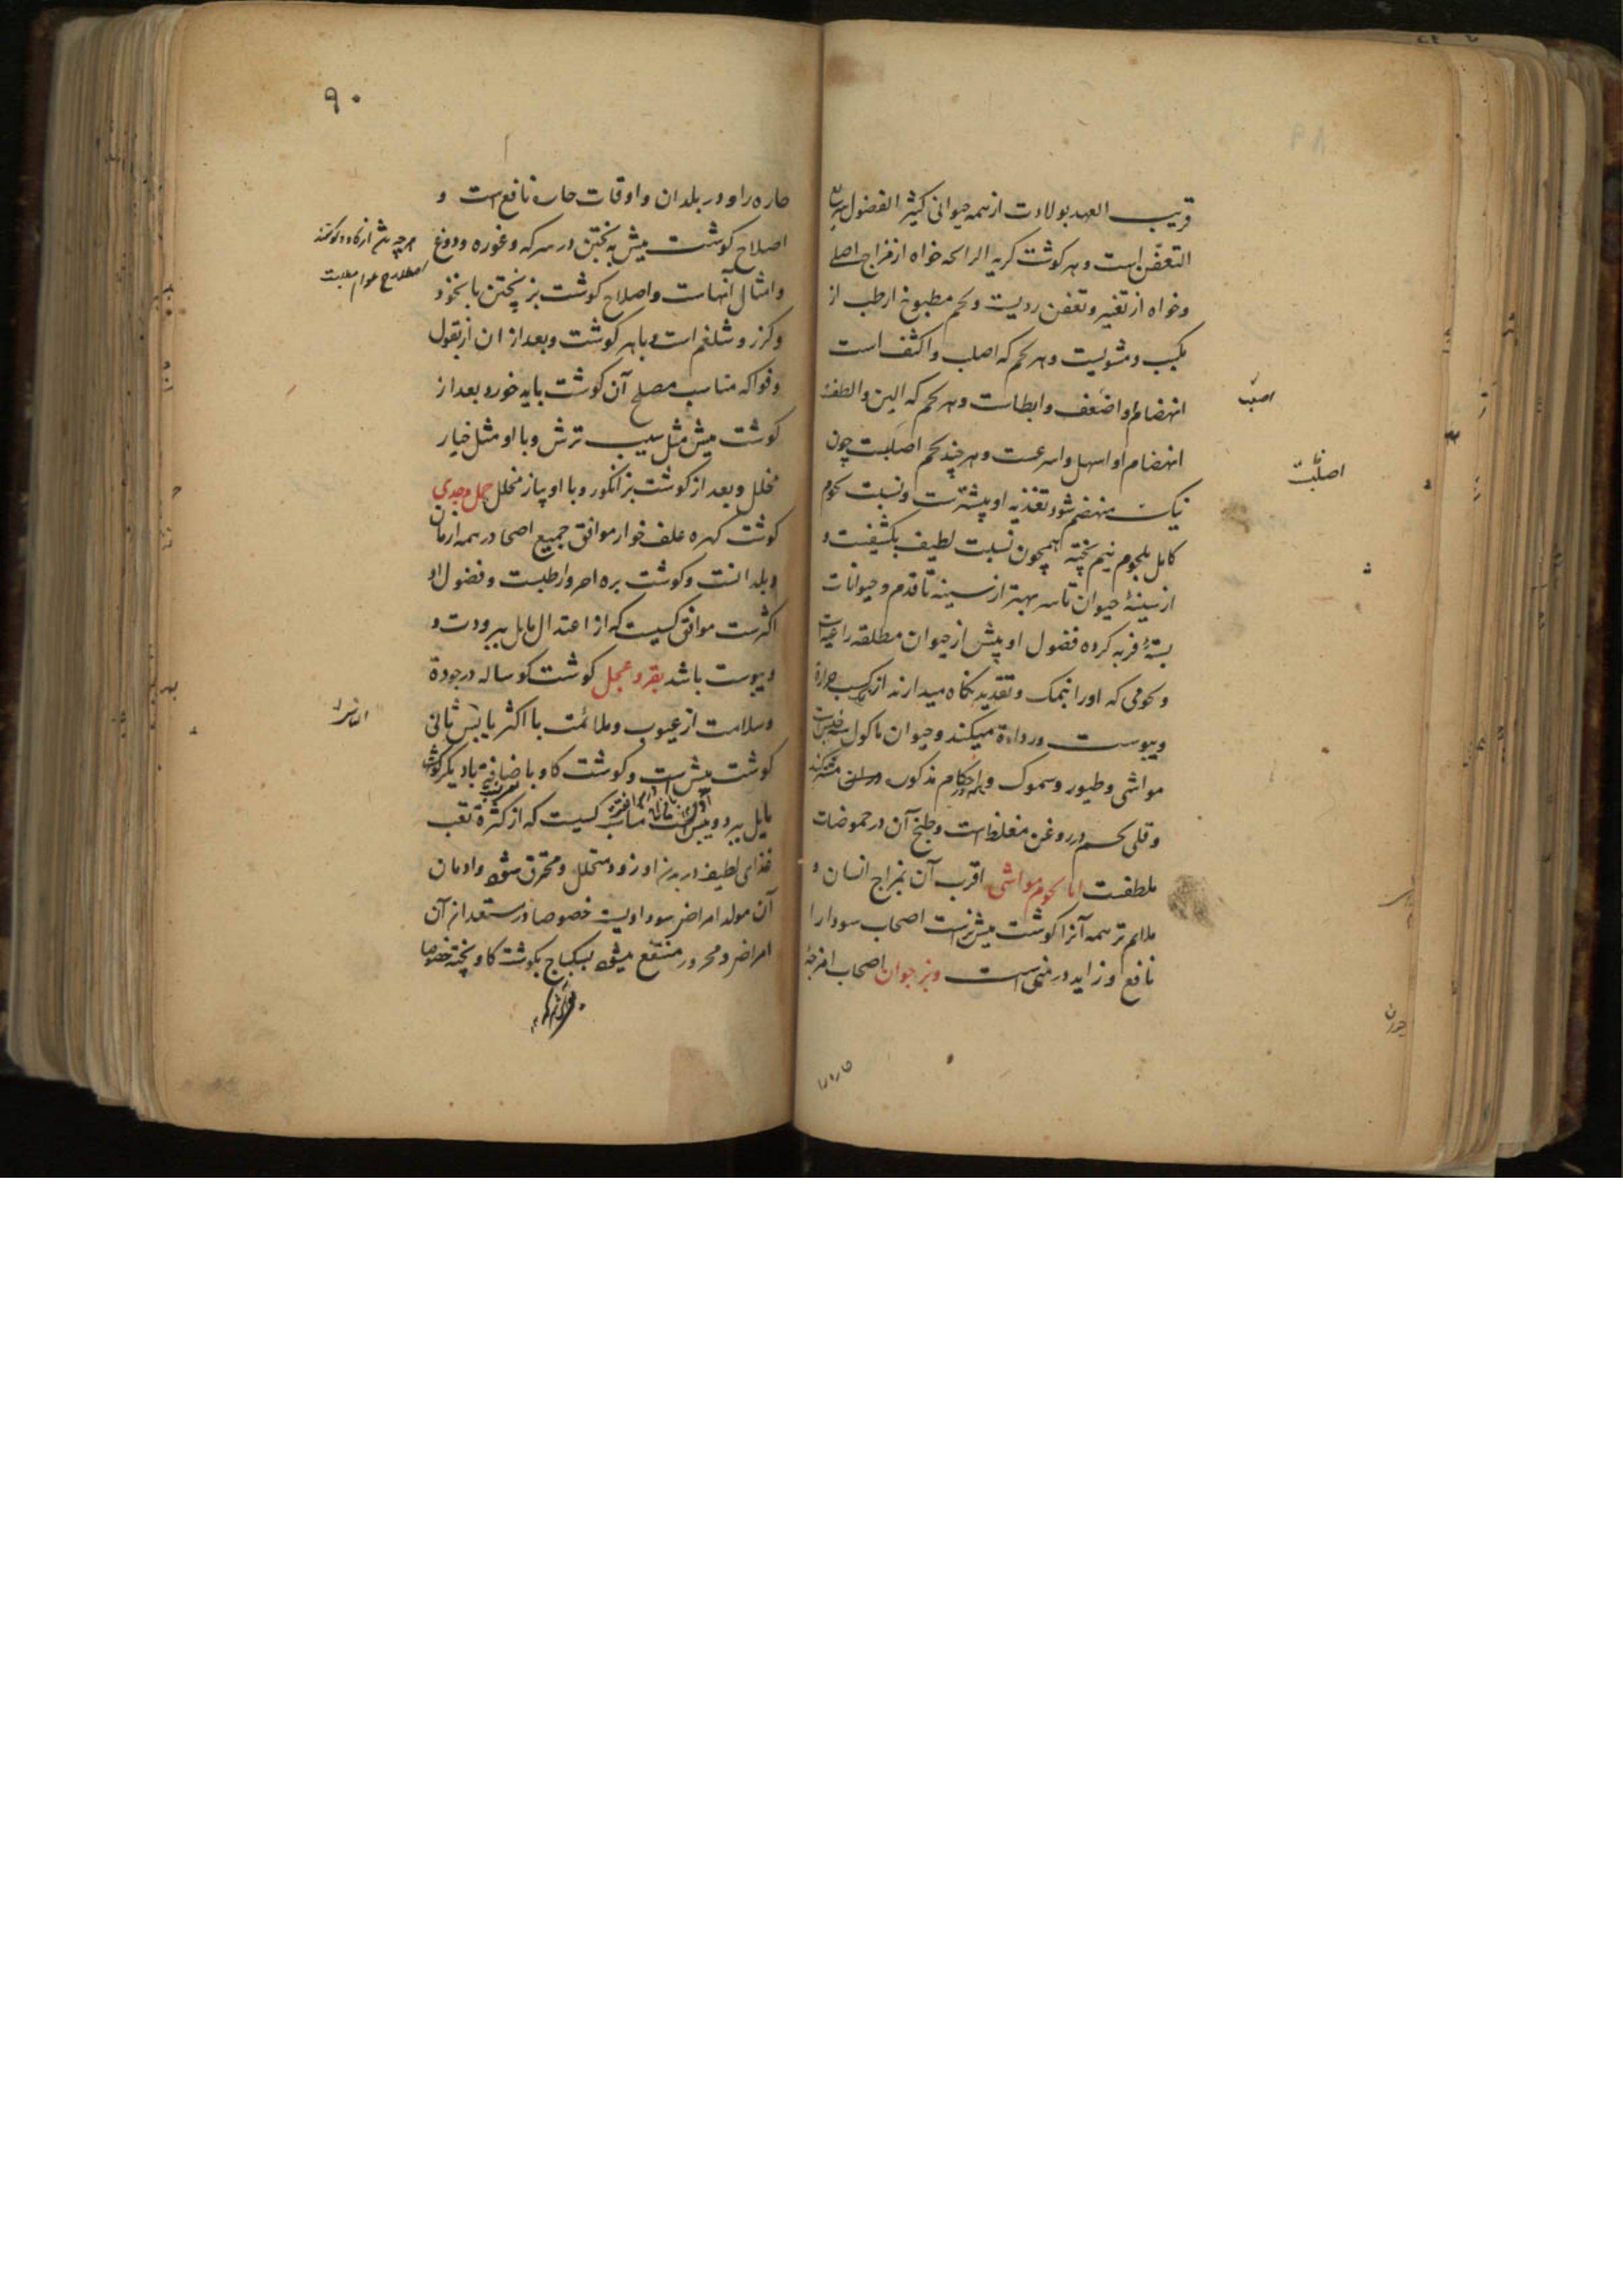 قریب العهد بولادت از همه حیوانی کثیر الفضول سریع
التعفّن است و هر گوشت کریه الرائحه خواه از مزاج اصلے
و خواه از تغیر و تعفن ردیست و لحم مطبوخ ارطب از
مکبب و مشویست و هر لحم که اصلب و اکثف است
انهضام او اضعف و ابطاست و هر لحم که الین و الطفت
انهضام او اسهل و اسرعست و هر چند لحم اصلبست چون
نیک منهضم شود تغذیه او بیشترست و نسبت لحوم
کامل بلحوم نیم پخته همچون نسبت لطیف بکثیفست و
از سینهٔ حیوان تا سر بهتر از سینه تا قدم و حیوانات
بستهٔ فربه کرده فضول او بیش از حیوان مطلقه راعیه است
و لحومی که او را بنمک و تقدید نگاه میدارند از کسب حرارة
و یبوست ورداءة میکند و حیوان ماکول سه جنس است
مواشی و طیور و سموک و احکام مذکور
و قلی لحم در روغن مغلظ است و طبخ آن در حموضات
ملطفست اما لحوم مواشی اقرب آن بمزاج انسان و
ملایم تر همه آنرا گوشت میش نرست اصحاب سودا را
نافع و زاید در منی است و بز جوان اصحاب امزجهٔ
اصلب
اصلبست
حاره را
۹۰
حاره را و در بلدان و اوقات حاره نافع است و
اصلاح گوشت میش به پختن در سرکه و غوره و دوغ
و امثال آنهاست و اصلاح گوشت بز پختن با نخود
و گزر و شلغم است و با هر گوشت و بعد از ان از بقول
و فواکه مناسب مصلح آن گوشت باید خورد بعد از
گوشت میش مثل سیب ترش و با او مثل خیار
مخلل و بعد از گوشت بز انگور و با او پیاز مخلل حمل و جدی
گوشت کهره علف خوار موافق جمیع اصحا در همه ازمان
و بلدانست و گوشت بره احر و ارطبست و فضول او
اکثرست موافق کسیست که از اعتدال مایل ببرودت و
و یبوست باشد بقر و عجل گوشت گوساله در جودة
و سلامت از عیوب و ملائمت با اکثر یا بس ثانی
گوشت میش است و گوشت گاو با ضافت با دیگر گوشتها
مایل ببرد و یبس است مناسب کسیست که از کثرة تعب
غذای لطیف در بدن او زود متحلل و محترق شود و ادمان
آن مولد امراض سوداویست خصوصا در مستعد از آن
امراض و محرور منتفع میشود بسکباج بگوشت گاو پخته خصوصا